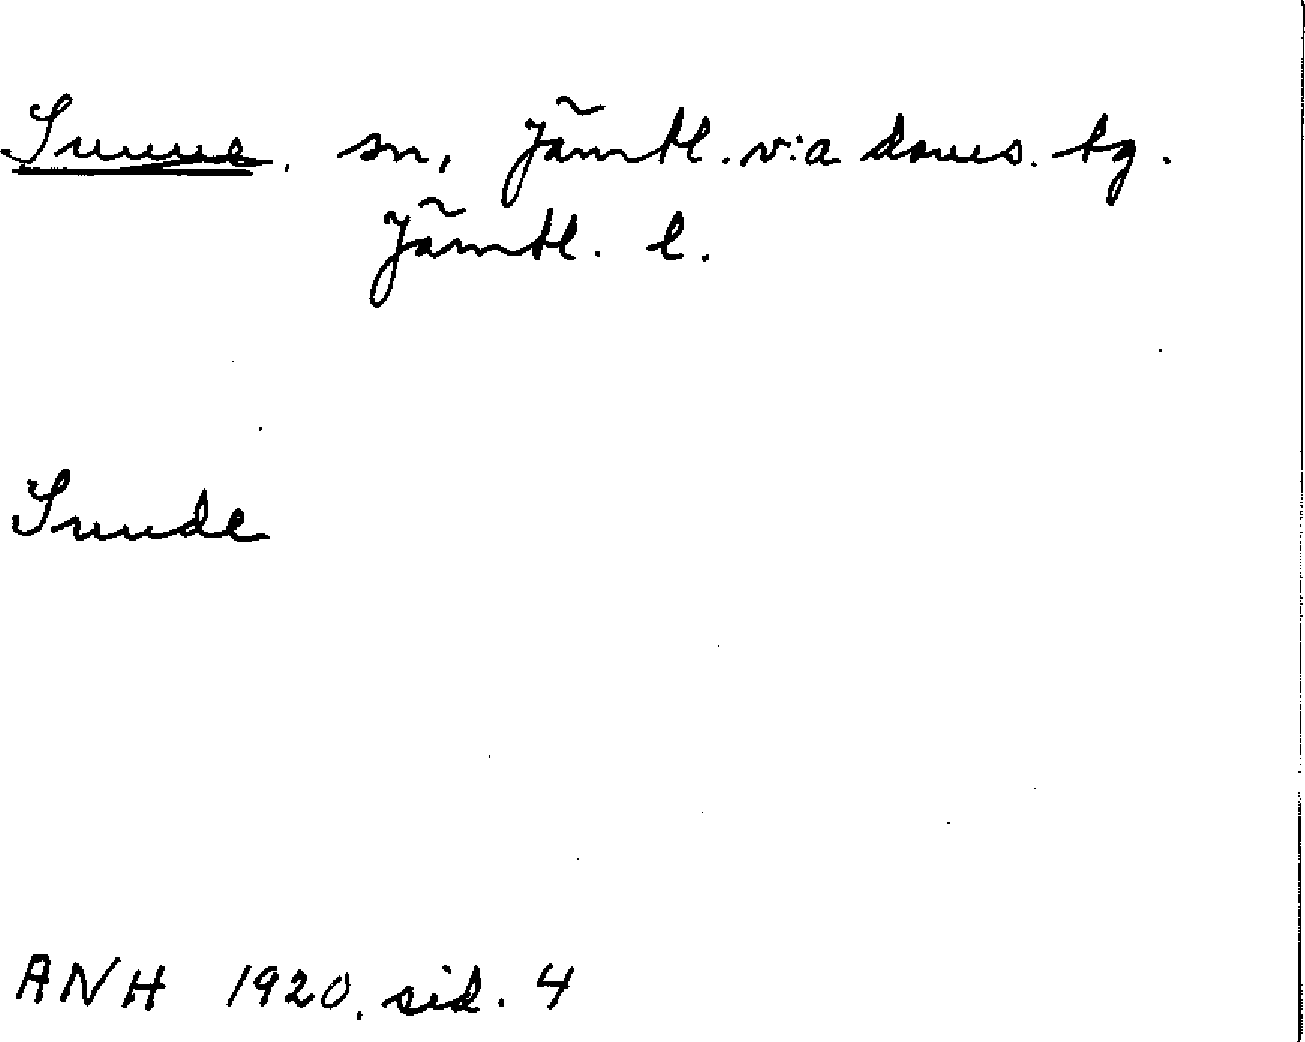 Sunne, sn, Jämtl. v:a doms. tg.
Jämtl. l.
Sunde
ANH 1920, sid. 4